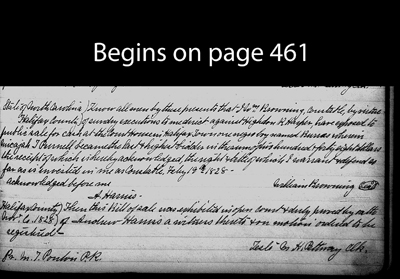 Begins on page 461
State of North Carolina } Know all men by these presents that I Wm. Browning, Constable, by virtue
Halifax County } of sundry executions to me direct against Highdon R. Harper, have exposed to
public sale for cash at the Court House in Halifax Town one negro boy named Burras wherein
Micajah T. Purnell became the last & highest bidder in the sum four hundred & forty eight dollars
the receipt of which is hereby acknowledged, the right & title of which I warrant & defend as
far as is invested in me as Constable. Feby 19th 1828 -
acknowledged before me William Browning
A. Harris
Halifax County } Then this Bill of sale was exhibited in open court & duly proved by oath
of Andrew Harris a witness thereto & on motion ordered to be
registered -
Teste M. H. Pettway Clk.
Pr. M. T. Ponton P.R.